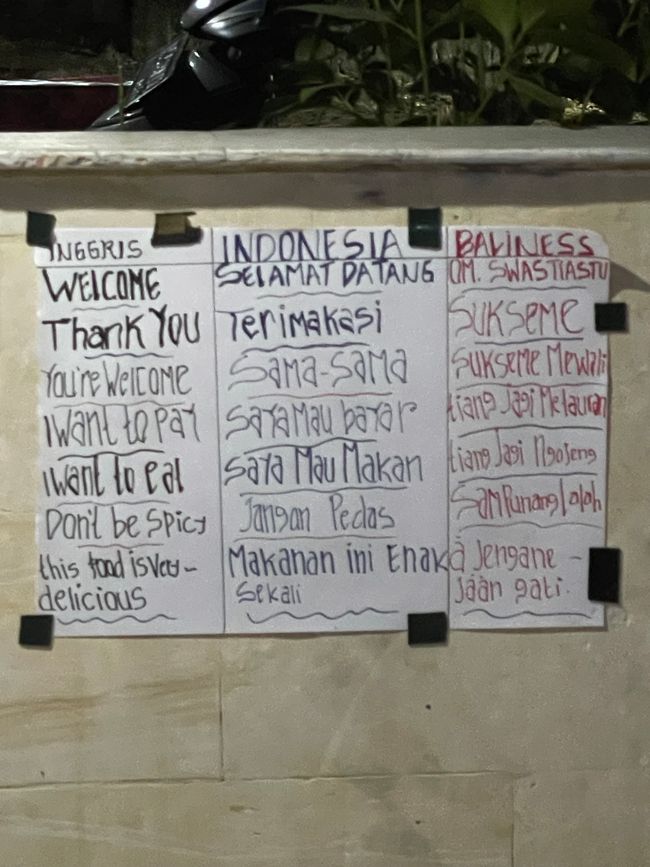 INGGRIS INDONESIA BALINESS
WELCOME SELAMAT DATANG OM. SWASTIASTU
Thank You Terimakasi SUKSEME
You're Welcome Sama-Sama SUKSEME Mewali
I want to Pay SaYa Mau bayar tiang Jagi Metauran
I want to eat SaYa Mau Makan tiang Jagi Ngajeng
Don't be Spicy Jangan Pedas SamPunang Laloh
this food is Very- Makanan ini Enak a Jengane -
delicious Sekali Jaan gati.